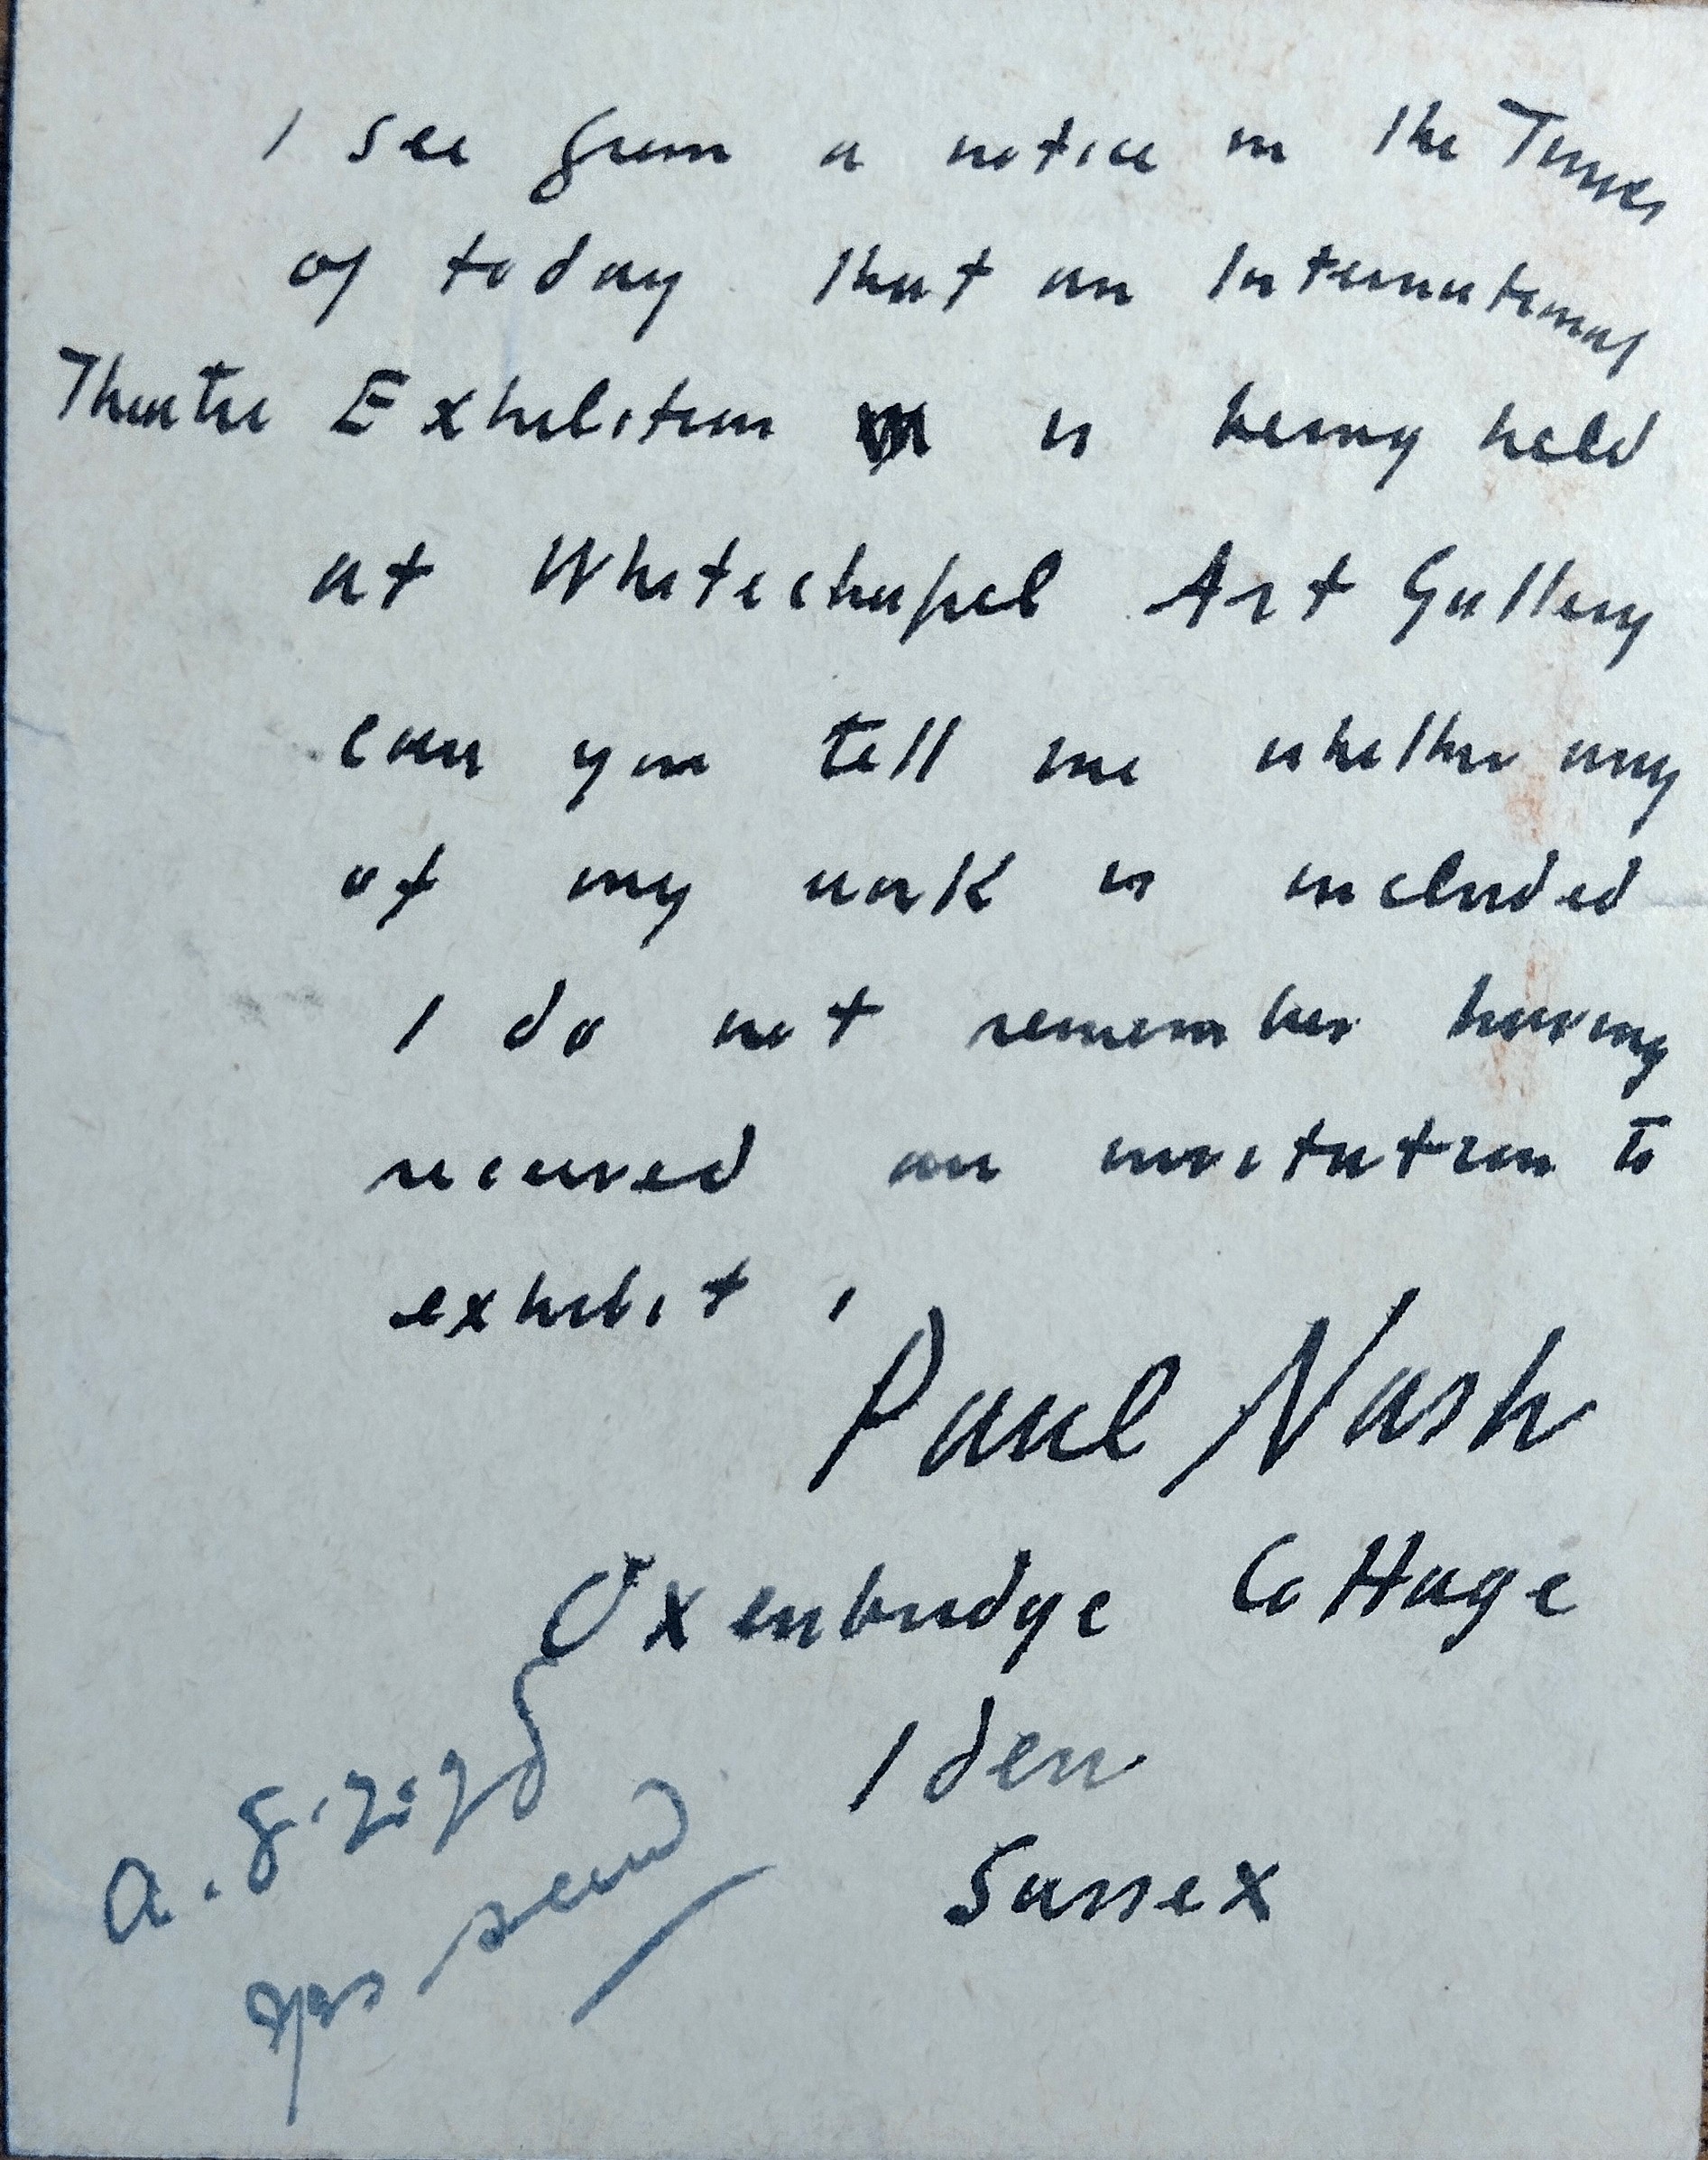 I see from a notice in the Times
of today that an International
Theatre Exhibition is being held
at Whitechapel Art Gallery
can you tell me whether any
of my work is included
I do not remember having
received an invitation to
exhibit.
Paul Nash
Oxenbridge Cottage
Iden
Sussex
a. 8.
send